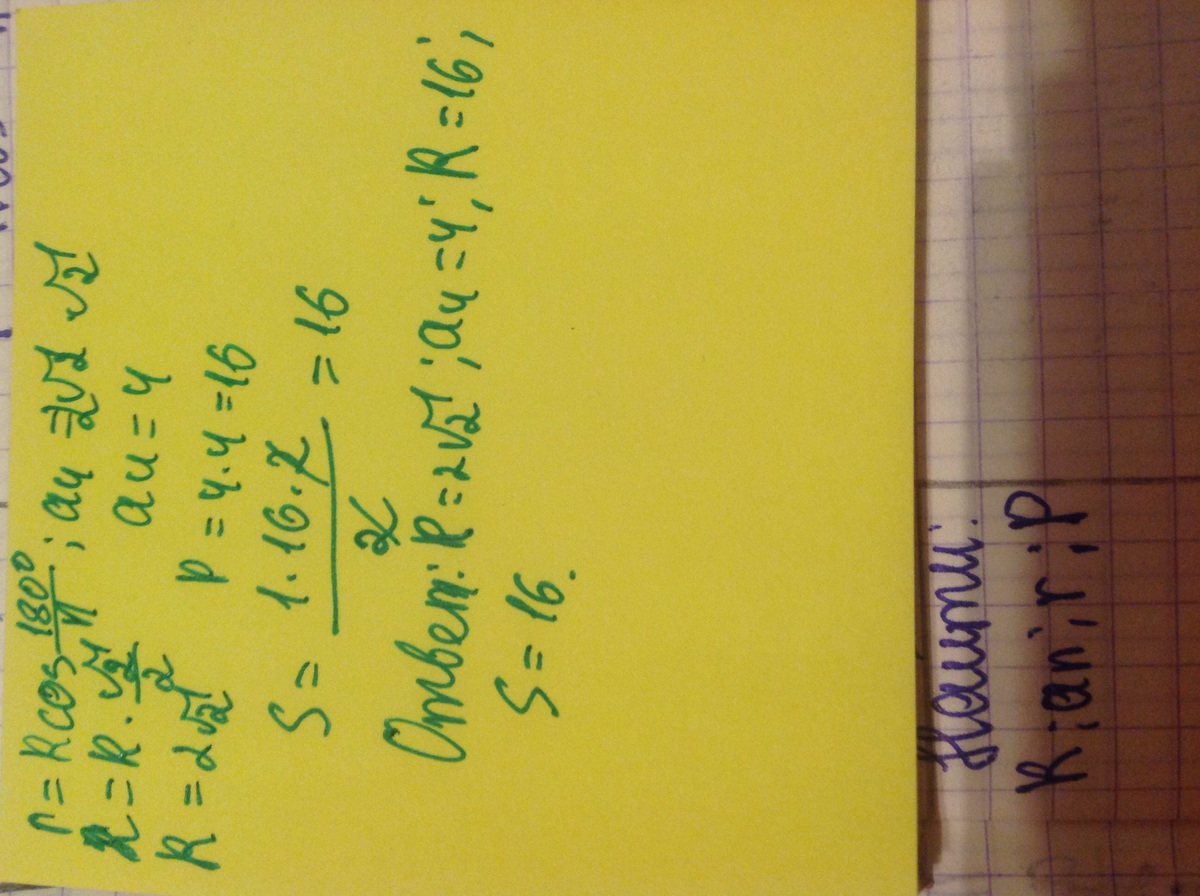 r = R cos 180°/n ; a4 = 2√2 √2
2 = R · √2/2
a4 = 4
R = 2√2
P = 4 · 4 = 16
S = 1 · 16 · 2 / 2 = 16
Ответ: R = 2√2 ; a4 = 4 ; R = 16 ;
S = 16.
Найти:
R ; an ; r ; P